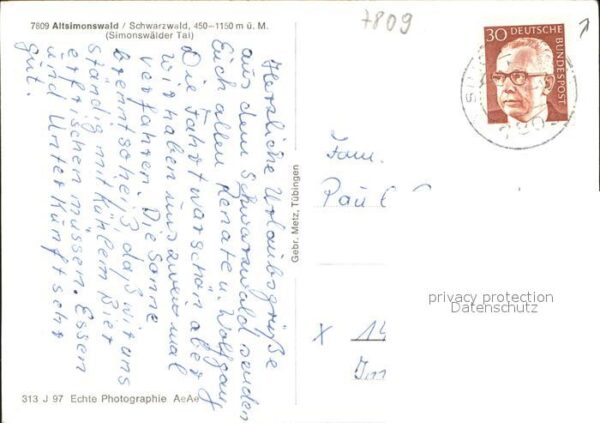 7809 Altsimonswald / Schwarzwald, 450–1150 m ü. M.
(Simonswälder Tal)
7809
30 DEUTSCHE
BUNDESPOST
Herzliche Urlaubsgrüße
aus dem Schwarzwald senden
Euch allen Renate u. Wolfgang
Die Fahrt war schön aber
wir haben uns zweimal
verfahren. Die Sonne
brennt so heiß daß wir uns
ständig mit kühlem Bier
erfrischen müssen. Essen
und Unterkünft sehr
gut.
Gebr. Metz, Tübingen
Fam.
Paul
privacy protection
Datenschutz
X 14
313 J 97 Echte Photographie AeAe